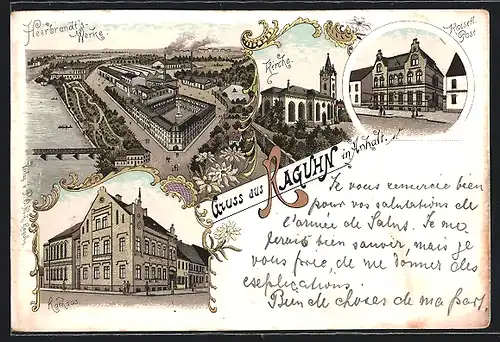 Heerbrandt's
Werke.
Kirche.
Kaiserl.
Post
Gruss aus RAGUHN
in Anhalt.
Rathaus.
Je vous remercie bien
pour vos salutations de
l'armée de Salus. Je me
ferais bien savoir, mais je
vous prie, de me donner des
eseplications.
Bien de choses de ma part.